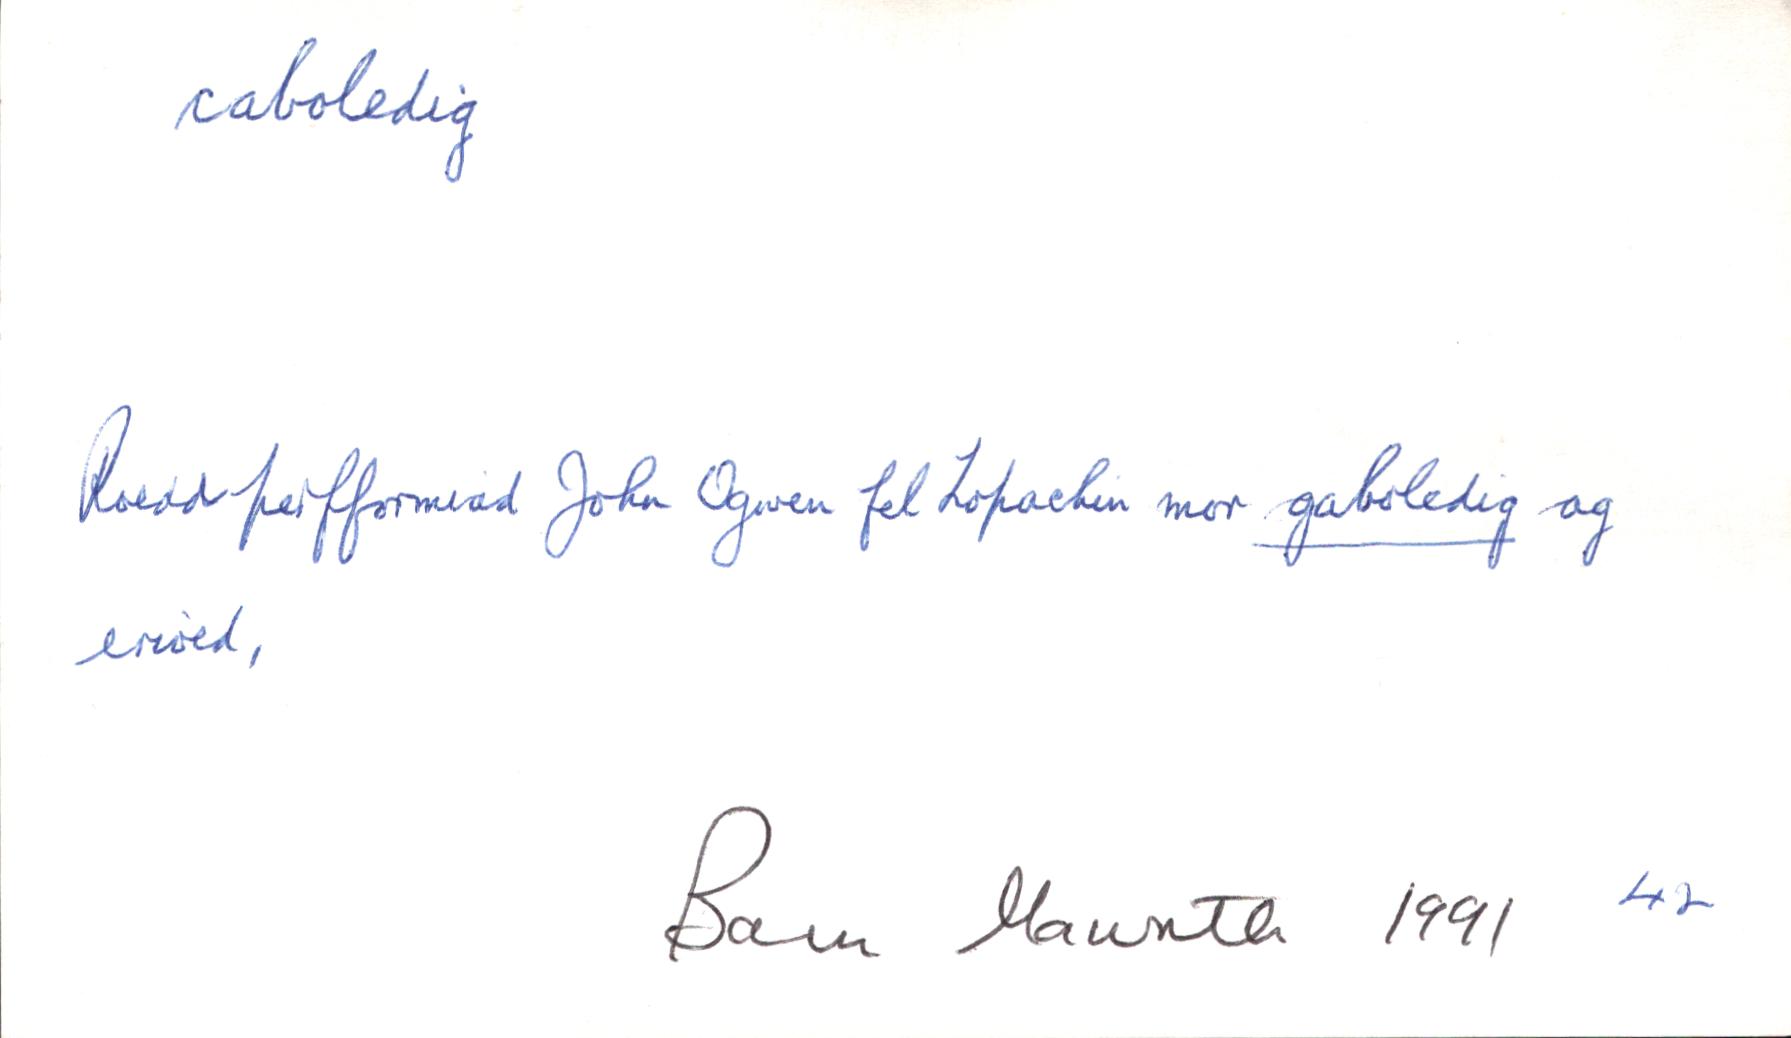 caboledig
Roedd perfformiad John Ogwen fel Lopachin mor gaboledig ag
erioed,
Barn Mawrth 1991 42